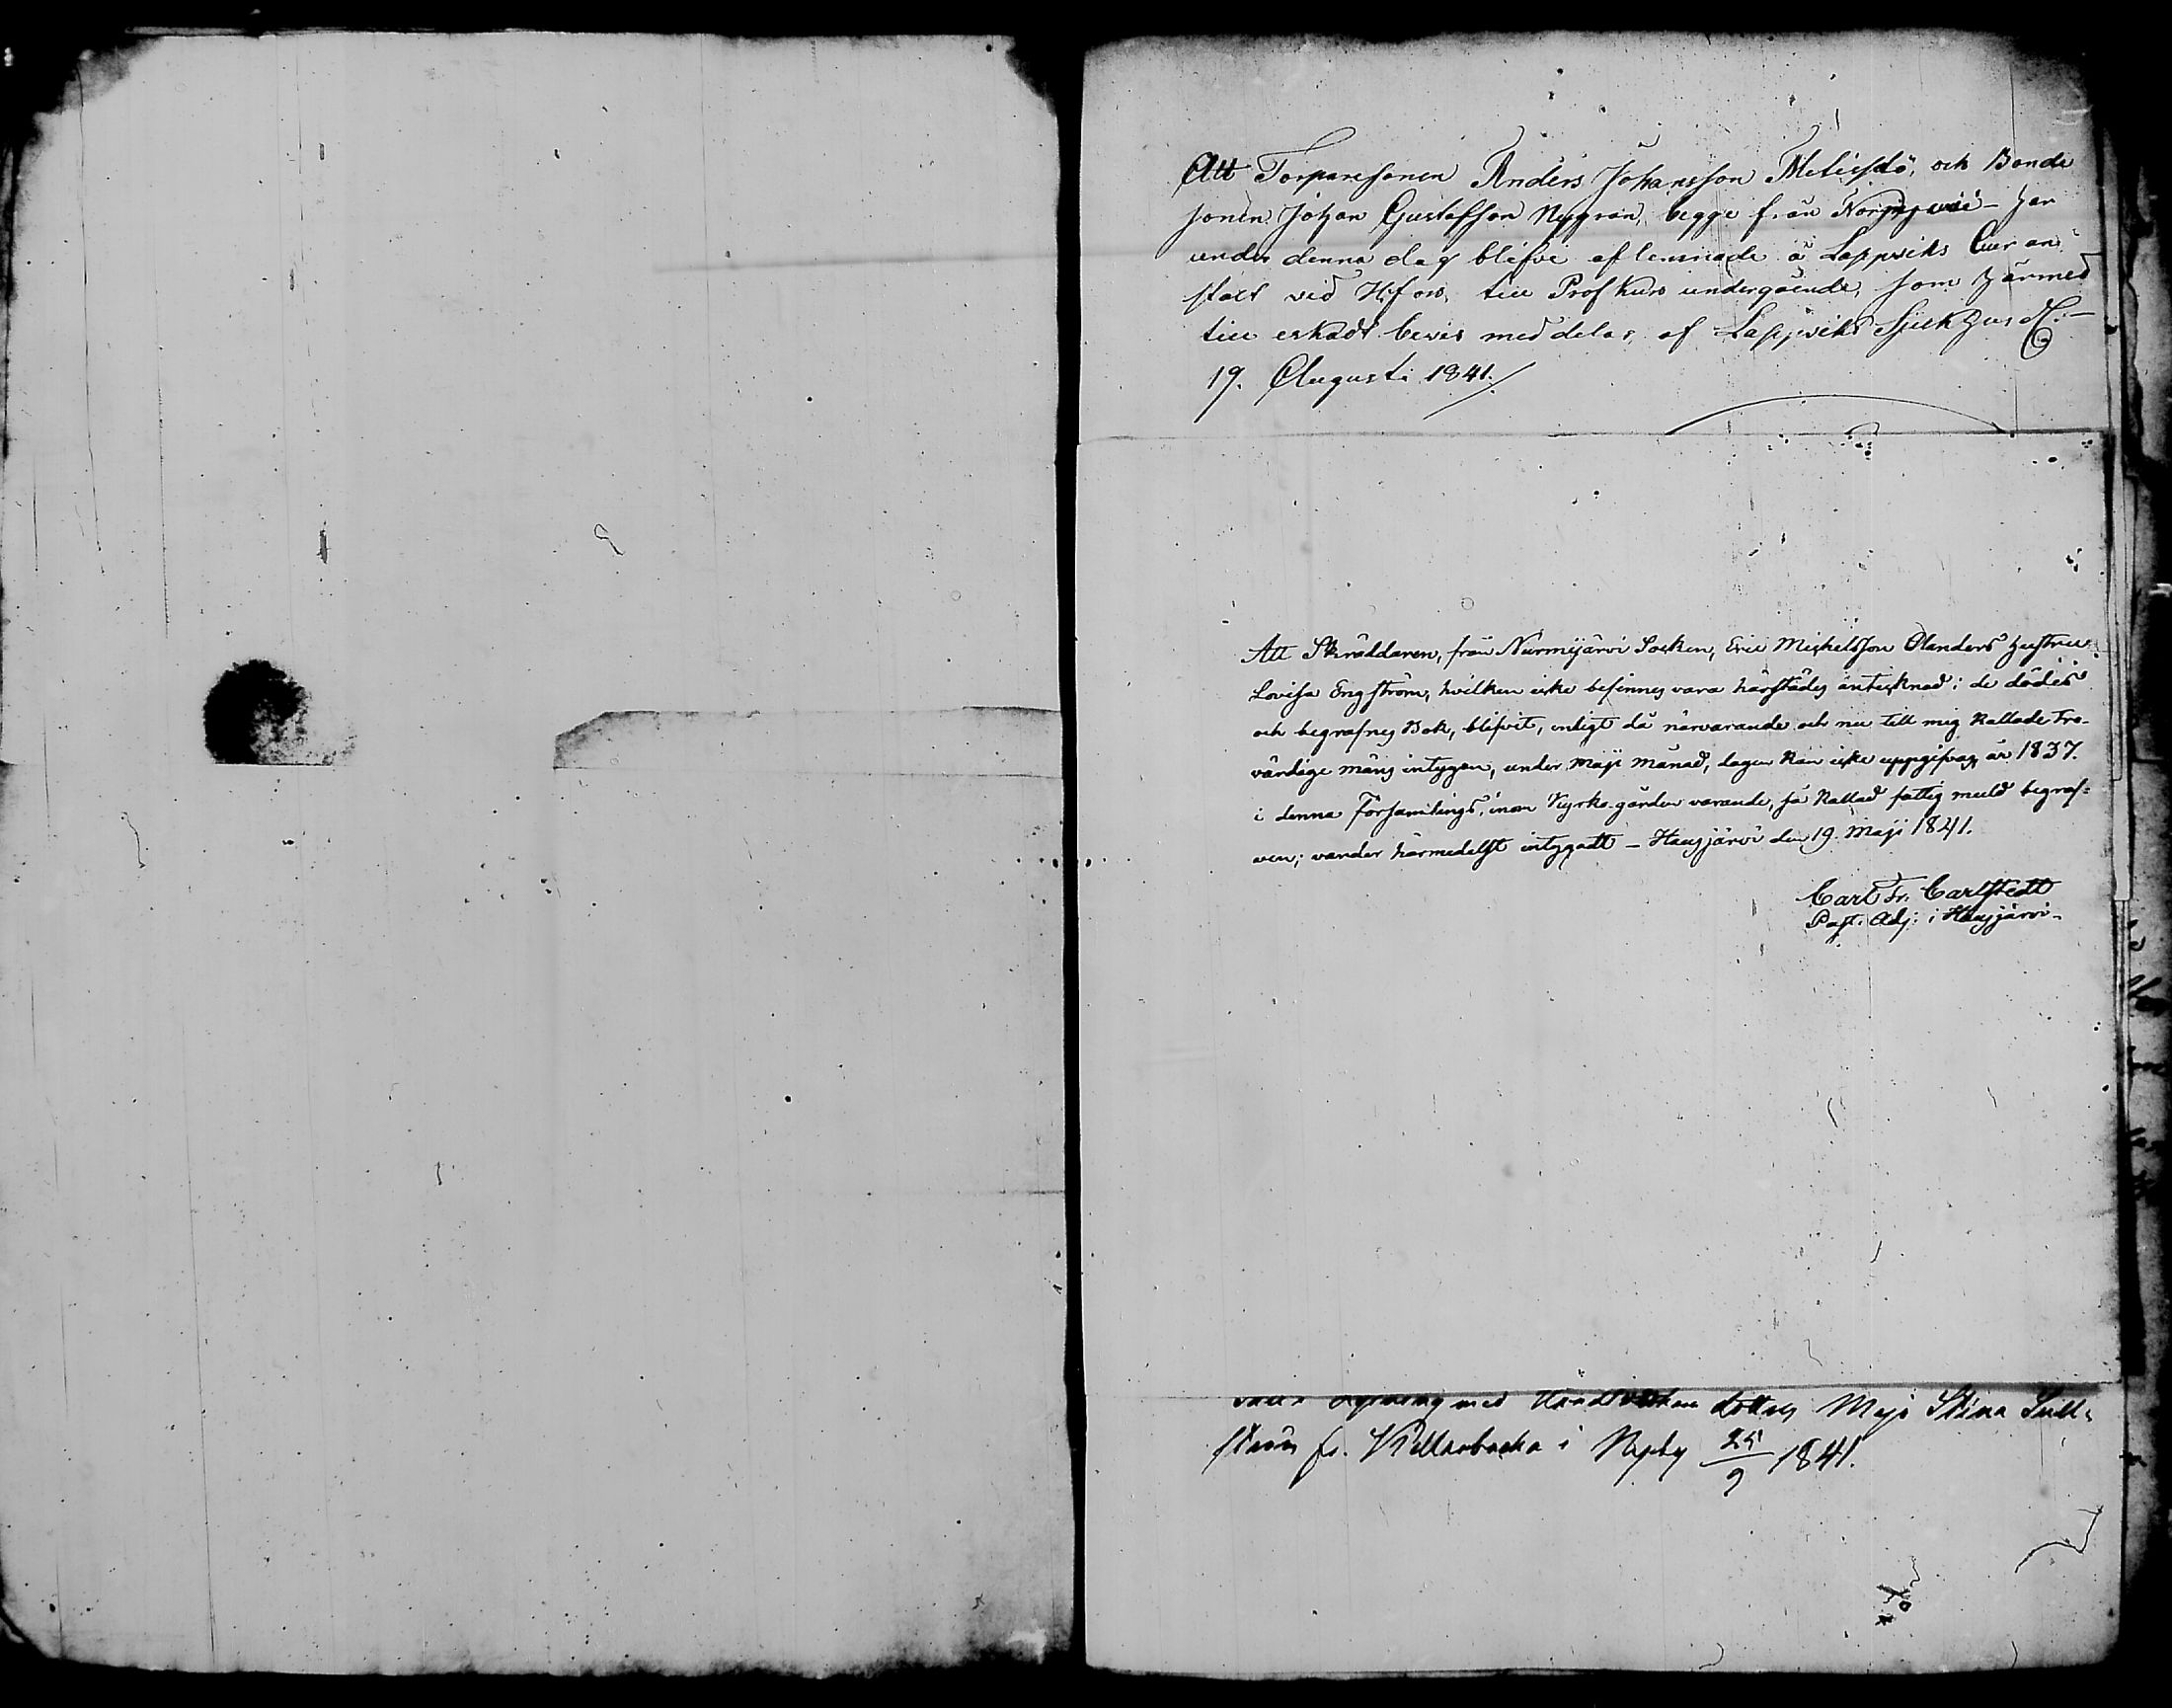 Att Torparesonen Anders Johansson och Bonde
sonen Johan Gustafsson Nygrän, begge från har
under denna dag blifvi aflemnade å Lappviks Curan
stalt vid H:fors, till Profkurs undergående, som härmed
till erkadt bevis meddelas, af Lappviks Sjukhus d.
19. Augusti 1841.
Att Skräddaren, från Nurmijärvi Socken, Eric Michelsson Olanders hustru
Lovisa Engström, hvilken icke befinnes vara härstädes anteknad i de dödes
och begrafnes Bok, blifvit, enligt då närvarande och nu till mig kallade Tro-
värdige mäns intygan, under Maji månad, dagen kan icke uppgifvas, år 1837.
i denna Församlings, inom Kyrko-gården varande, så kallad fattig muld begraf-
ven; varder härmedelst intygadt – Hausjärvi den 19 Maji 1841.
Carl Fr. Carlstedt
Past. Adj: i Hausjärvi.
med dotter Maja Stina
ström fr. i Nyby 25/9 1841.